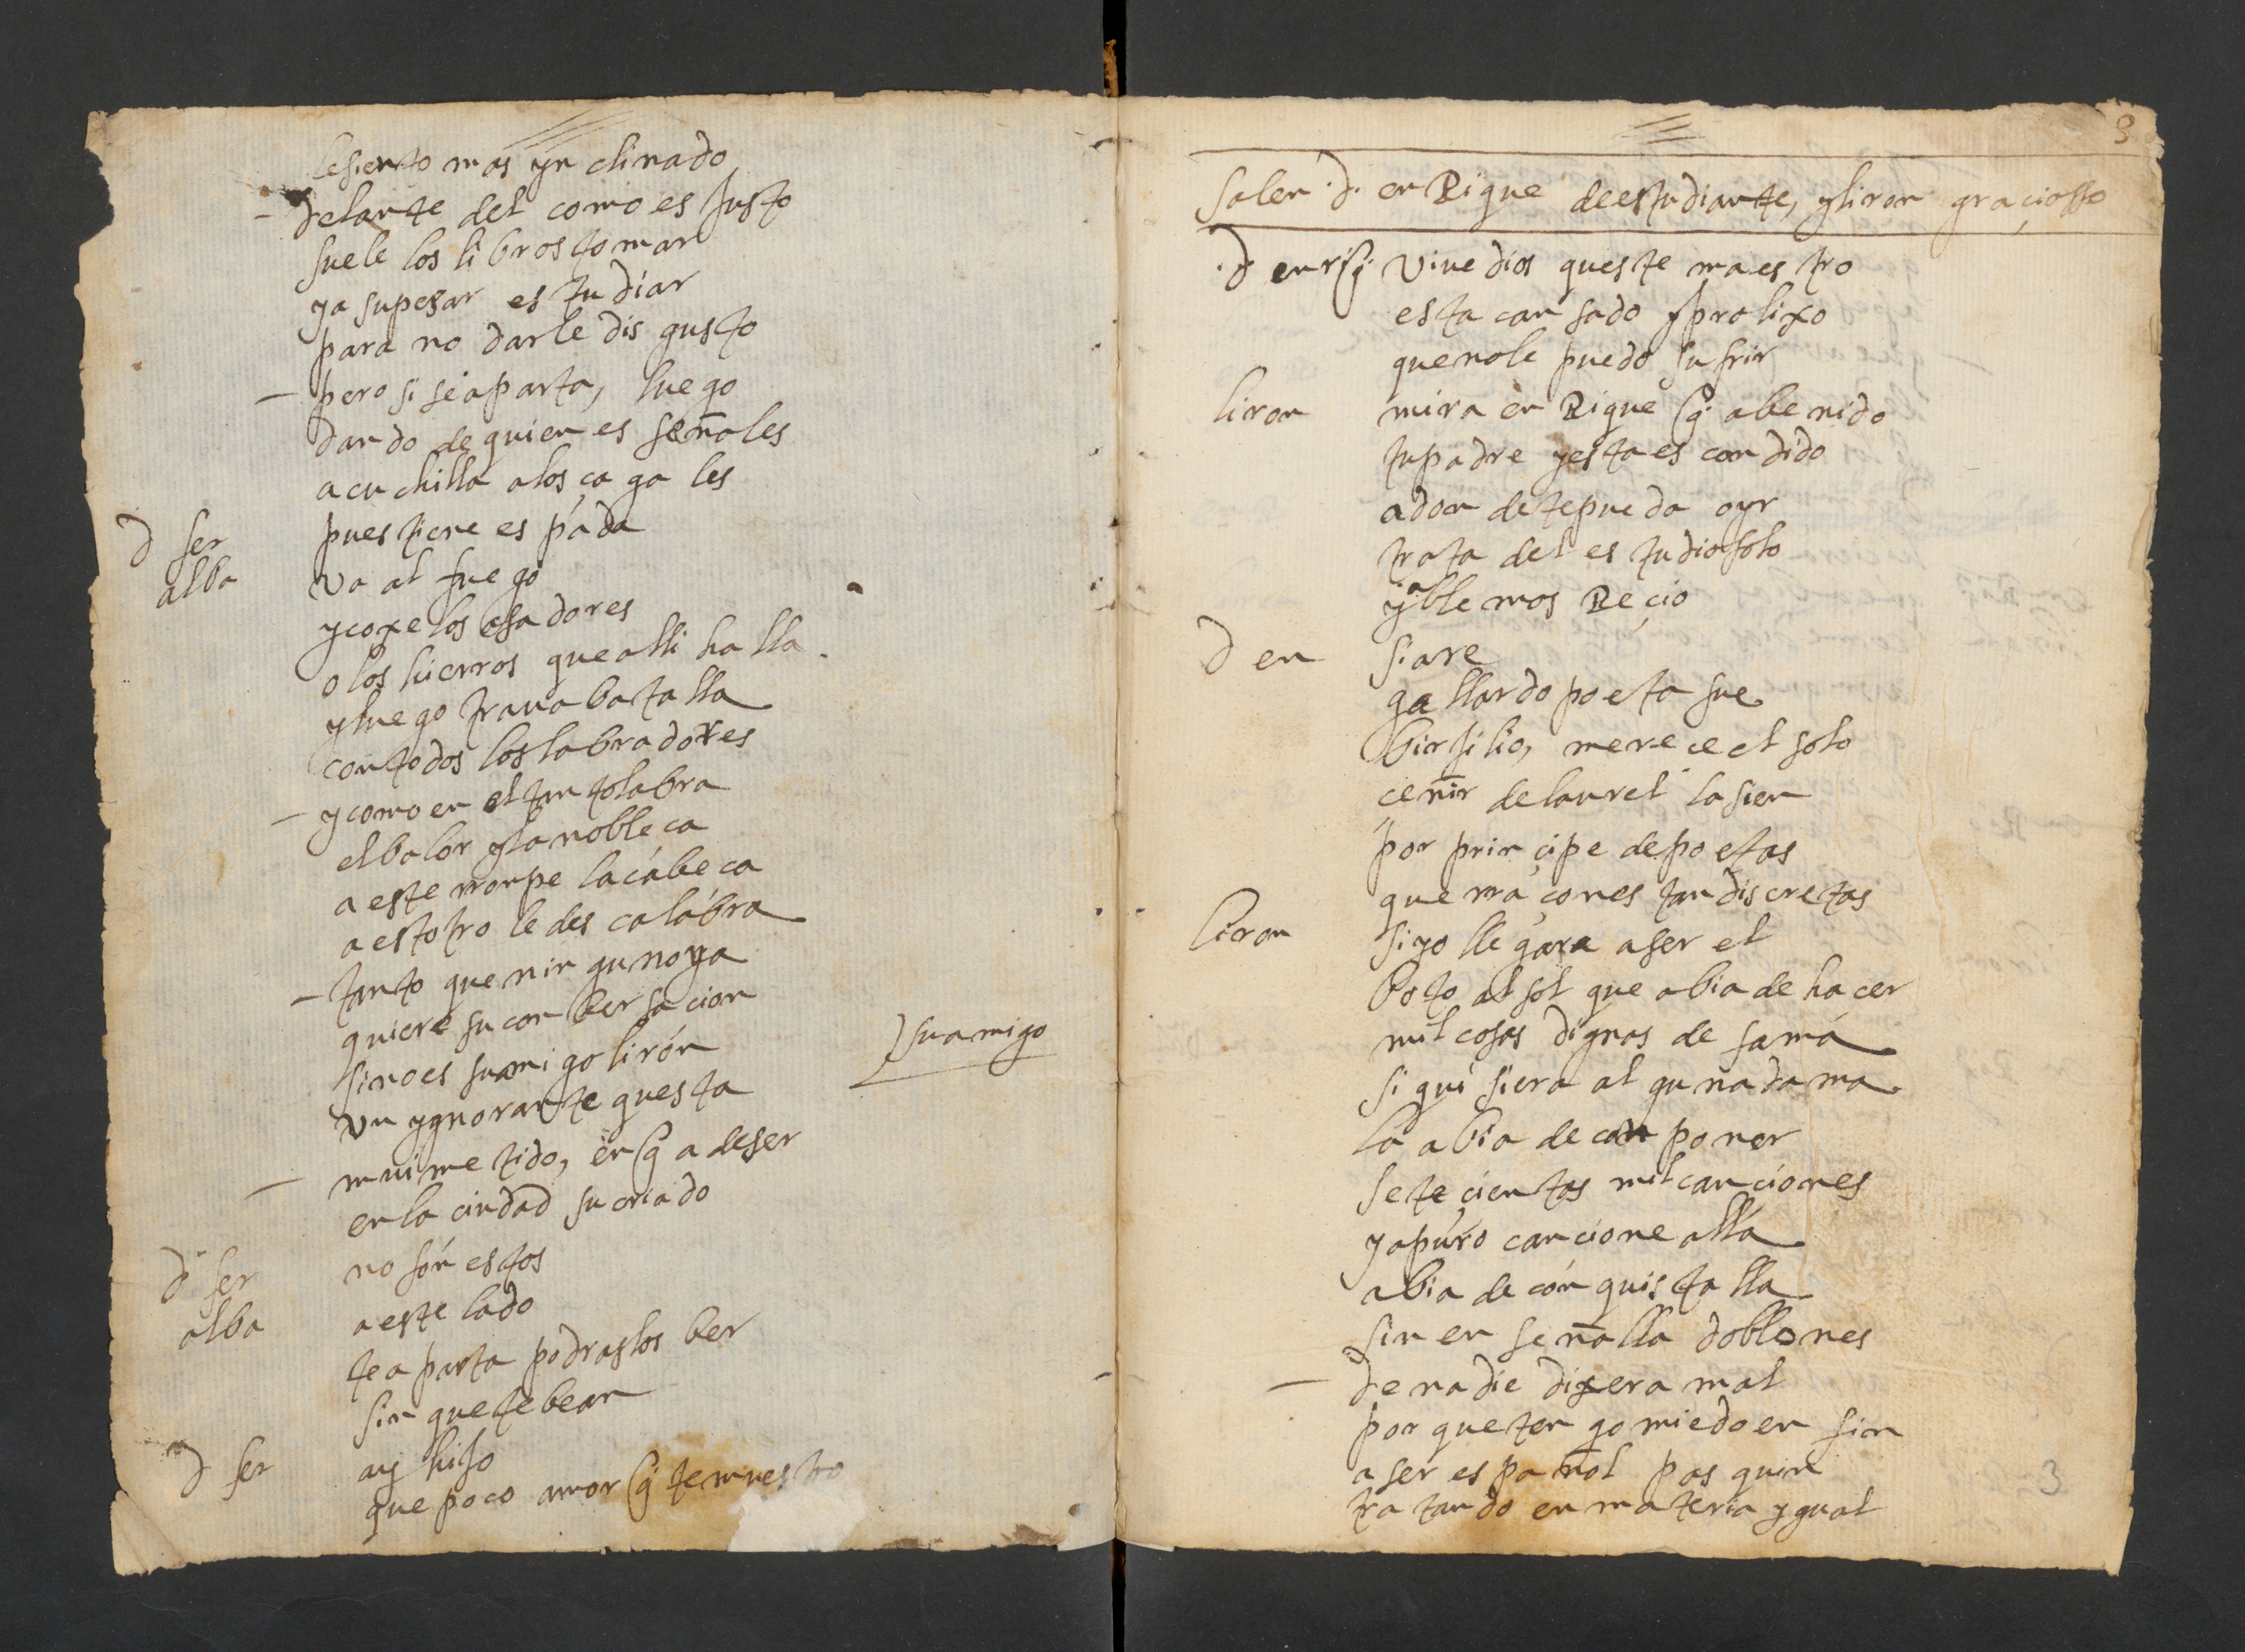 le siento mas ynclinado
- delante del como es justo
suele los libros tomar
y a su pesar estudiar
para no darle disgusto
- pero si se aparta, luego
dando de quien es señales
acuchilla a los çagales
pues tiene espada
d fer
alba va al fuego
y coxe los asadores
o los hierros que alli halla
y luego traua batalla
con todos los labradores
- y como en el tanto labra
el balor y la nobleca
a este rronpe la cabeca
a estotro le descalabra
- tanto que ninguno ya
quiere su conbersacion
sino es su amigo lirón
su amigo
vn ygnorante questa
- mui metido, en q̃ a de ser
en la ciudad su criado
d fer no són estos
alba a este lado
te aparta podraslos ber
sin que te bean
d fer ay hijo
que poco amor q̃ te muestro
3
salen .d. enRique de estudiante, y liron graçiosso
.d enriq̃. viue dios queste maestro
esta cansado y prolixo
que no le puedo sufrir
liron mira enRique q̃ a benido
tu padre y esta escondido
adonde te pueda oyr
trata del estudio solo
y ablemos Reçio
d en si are
gallardo poeta fue
birjilio, merece el solo
çeñir de laurel la sien
por prinçipe de poetas
que rraçones tan discretas
liron si yo llegara a ser el
boto al sol que abia de hacer
mil cosas dignas de fama
si quisiera alguna dama
la abia de conponer
seteçientas mil canciones
y a puro cancione alla
abia de conquistalla
sin enseñalla doblones
- de nadie dixera mal
porque tengo miedo en fin
a ser español pasquin
tratando en materia ygual
3